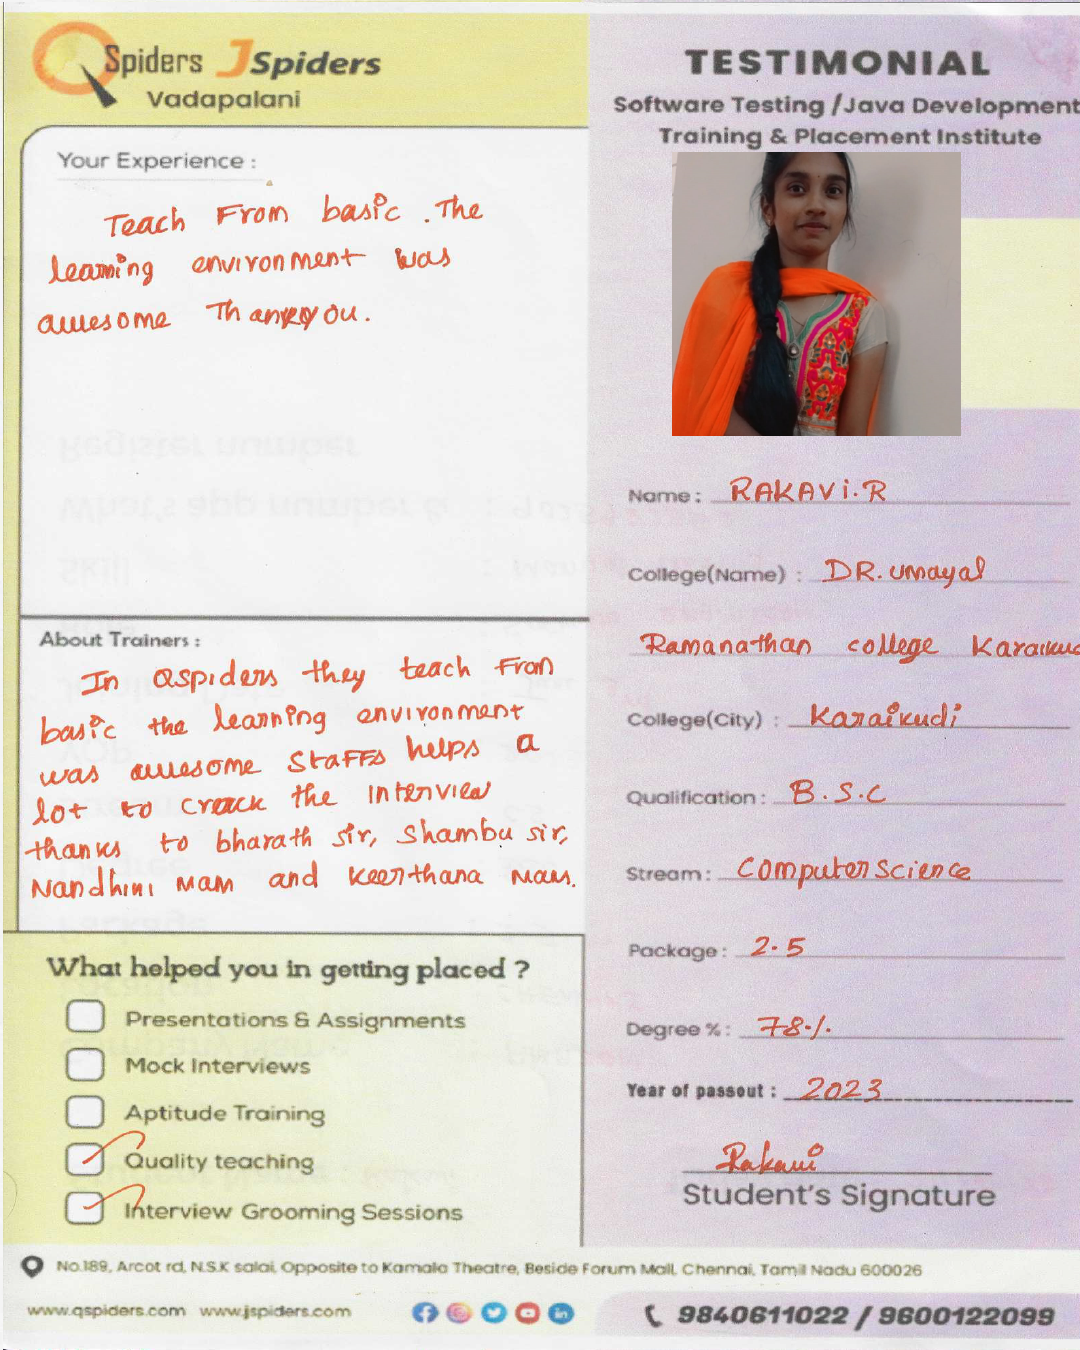 QSpiders JSpiders
Vadapalani
Your Experience :
Teach From basic . The
learning environment was
awesome Thankyou.
About Trainers :
In Qspiders they teach From
basic the learning environment
was awesome Staffs helps a
lot to crack the interview
thanks to bharath sir, Shambu sir,
Nandhini Mam and Keerthana Mam.
What helped you in getting placed ?
Presentations & Assignments
Mock Interviews
Aptitude Training
Quality teaching
Interview Grooming Sessions
TESTIMONIAL
Software Testing /Java Development
Training & Placement Institute
Name : RAKAVI.R
College(Name) : DR. Umayal
Ramanathan college Karaikud
College(City) : Karaikudi
Qualification : B.S.C
Stream : Computer Science
Package : 2.5
Degree % : 78%
Year of passout : 2023
Rakavi
Student's Signature
No.189, Arcot rd, N.S.K salai, Opposite to Kamala Theatre, Beside Forum Mall, Chennai, Tamil Nadu 600026
www.qspiders.com www.jspiders.com
9840611022 / 9600122099